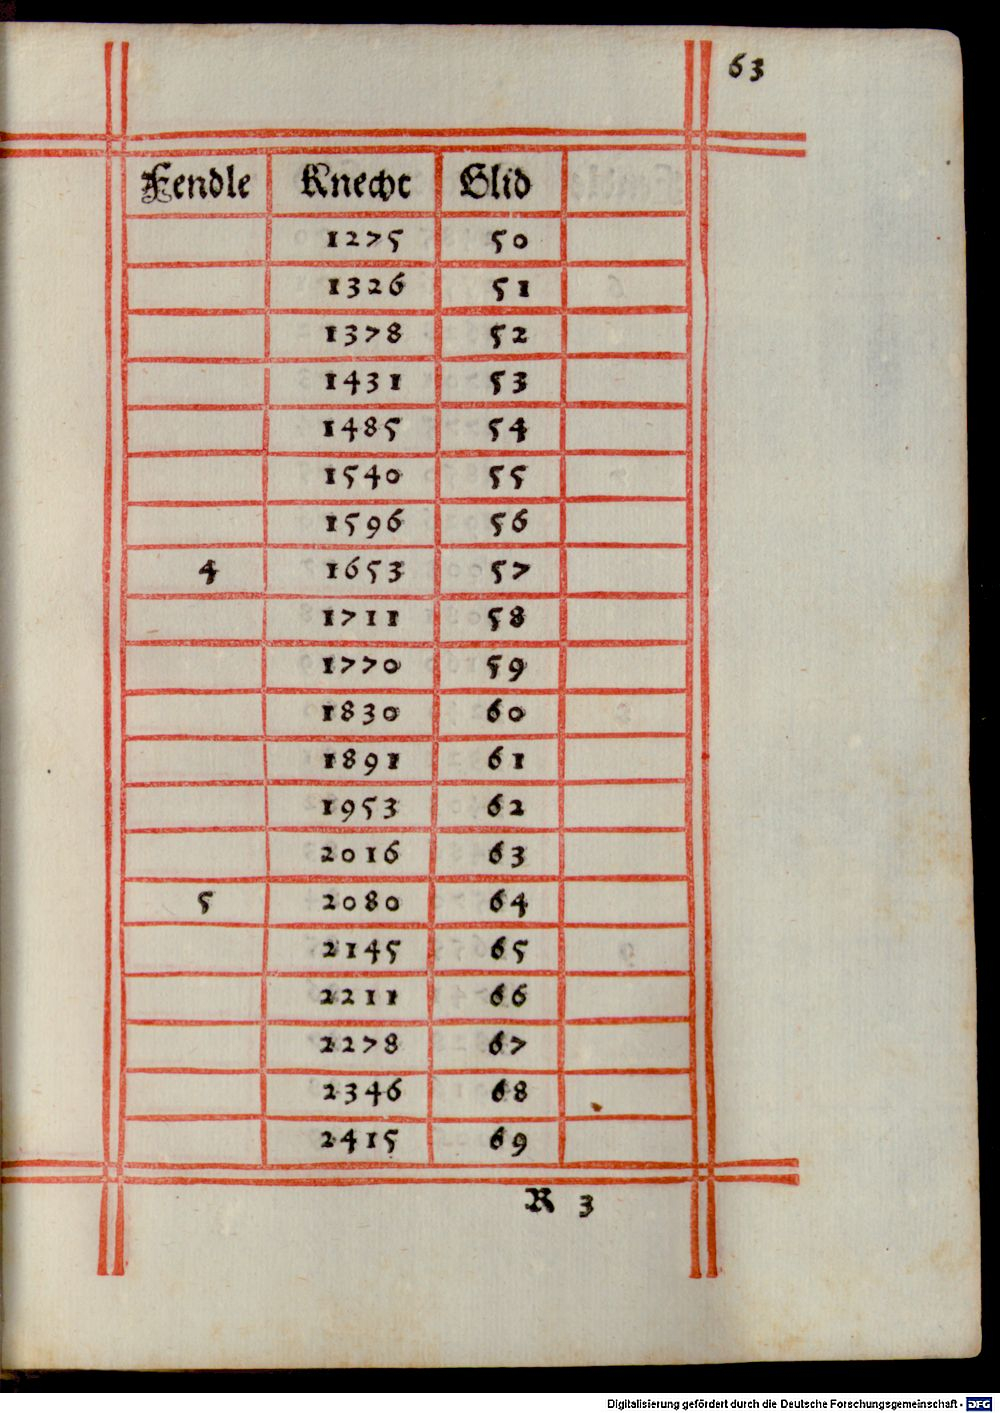 63
Fendle Knecht Glid
1275 50
1326 51
1378 52
1431 53
1485 54
1540 55
1596 56
4 1653 57
1711 58
1770 59
1830 60
1891 61
1953 62
2016 63
5 2080 64
2145 65
2211 66
2278 67
2346 68
2415 69
R 3
Digitalisierung gefördert durch die Deutsche Forschungsgemeinschaft - DFG